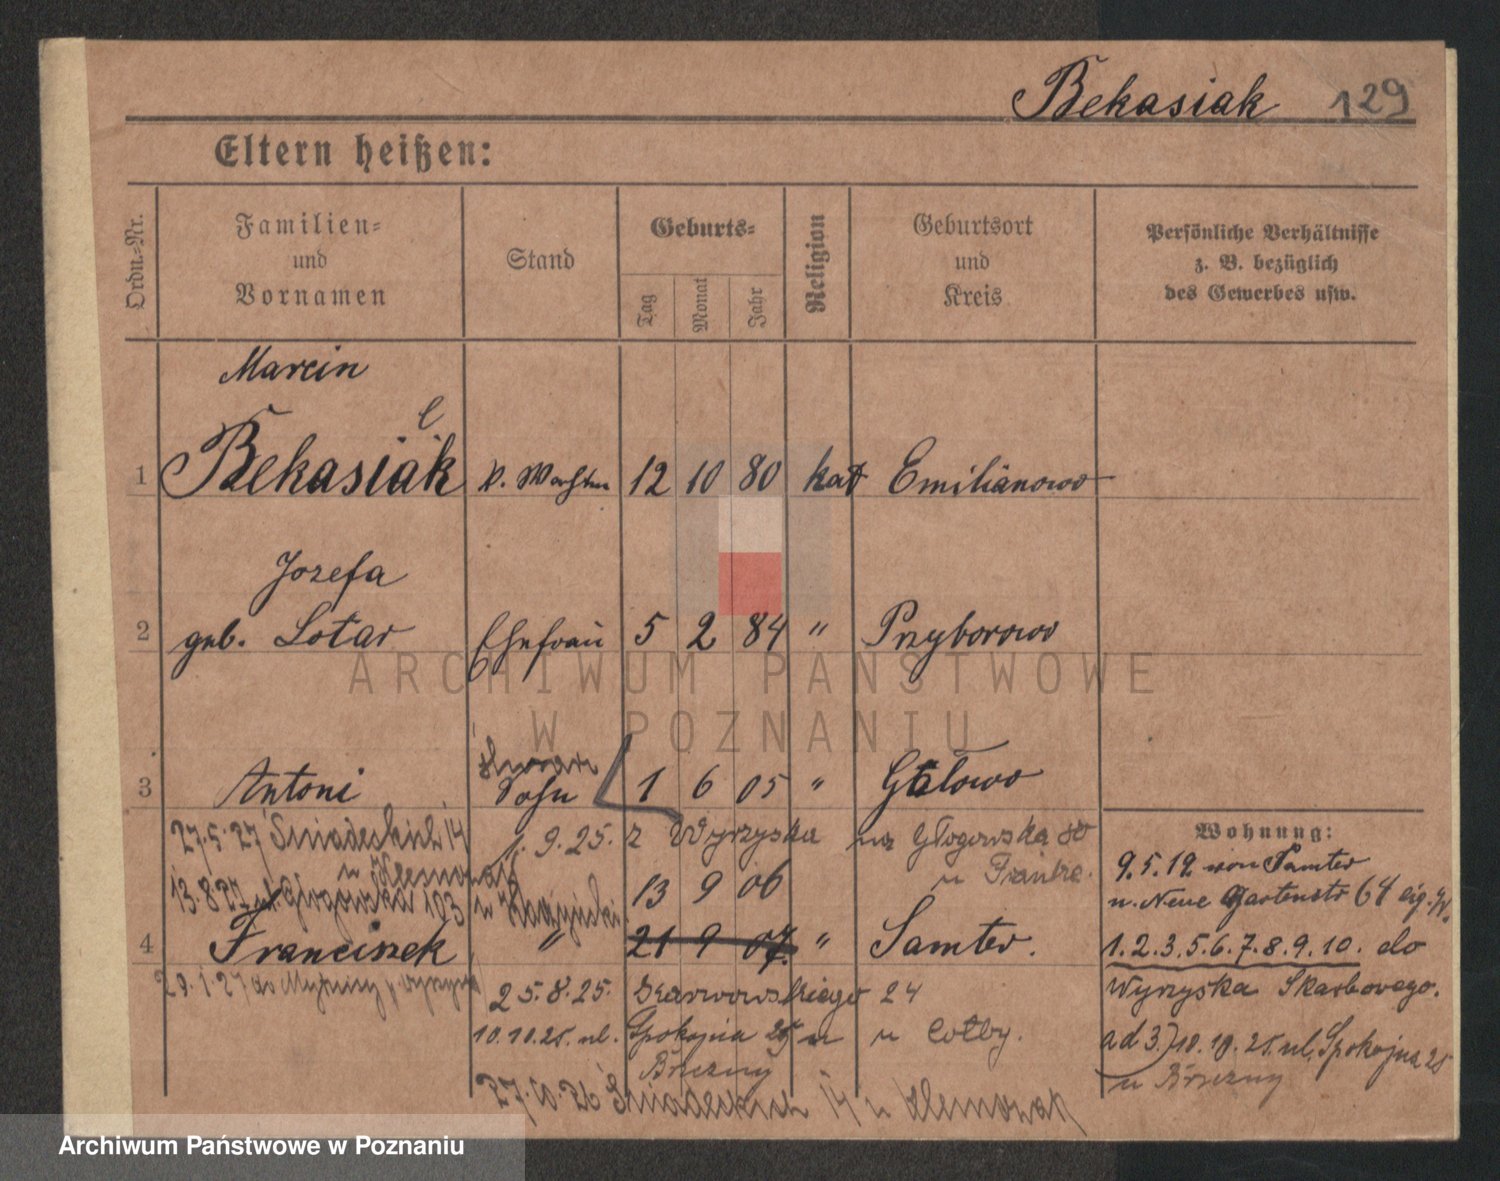 Bekasiak 129
Eltern heißen:
Ordn.=Nr.
Familien=
und
Vornamen
Stand
Geburts=
Tag
Monat
Jahr
Religion
Geburtsort
und
Kreis
Persönliche Verhältnisse
z. B. bezüglich
des Gewerbes usw.
Marcin
1 Bekasiak 12 10 80 kat Emilianowo
Jozefa
2 geb. Lotar Ehefrau 5 2 84 " Przyborowo
3 Antoni Sohn 1 6 05 "
27.5.27 Śniadeckich 14 1.9.25. z Wyrzyska Głogowska
13.8.27 Głogowska 103 13 9 06
4 Franciszek " 21 9 07. " Samter.
25.8.25. 24
10.10.25. ul. Spokojna
Brzezny
27.10.26 Śniadeckich 14 u
Wohnung:
9.5.12 von Samter
n. Neue Gartenstr 64
1.2.3.5.6.7.8.9.10. do
Wyrzyska Skarbowego.
ad 3.) ul. Spokojna 25
u Brzezny
ARCHIWUM PAŃSTWOWE
W POZNANIU
Archiwum Państwowe w Poznaniu